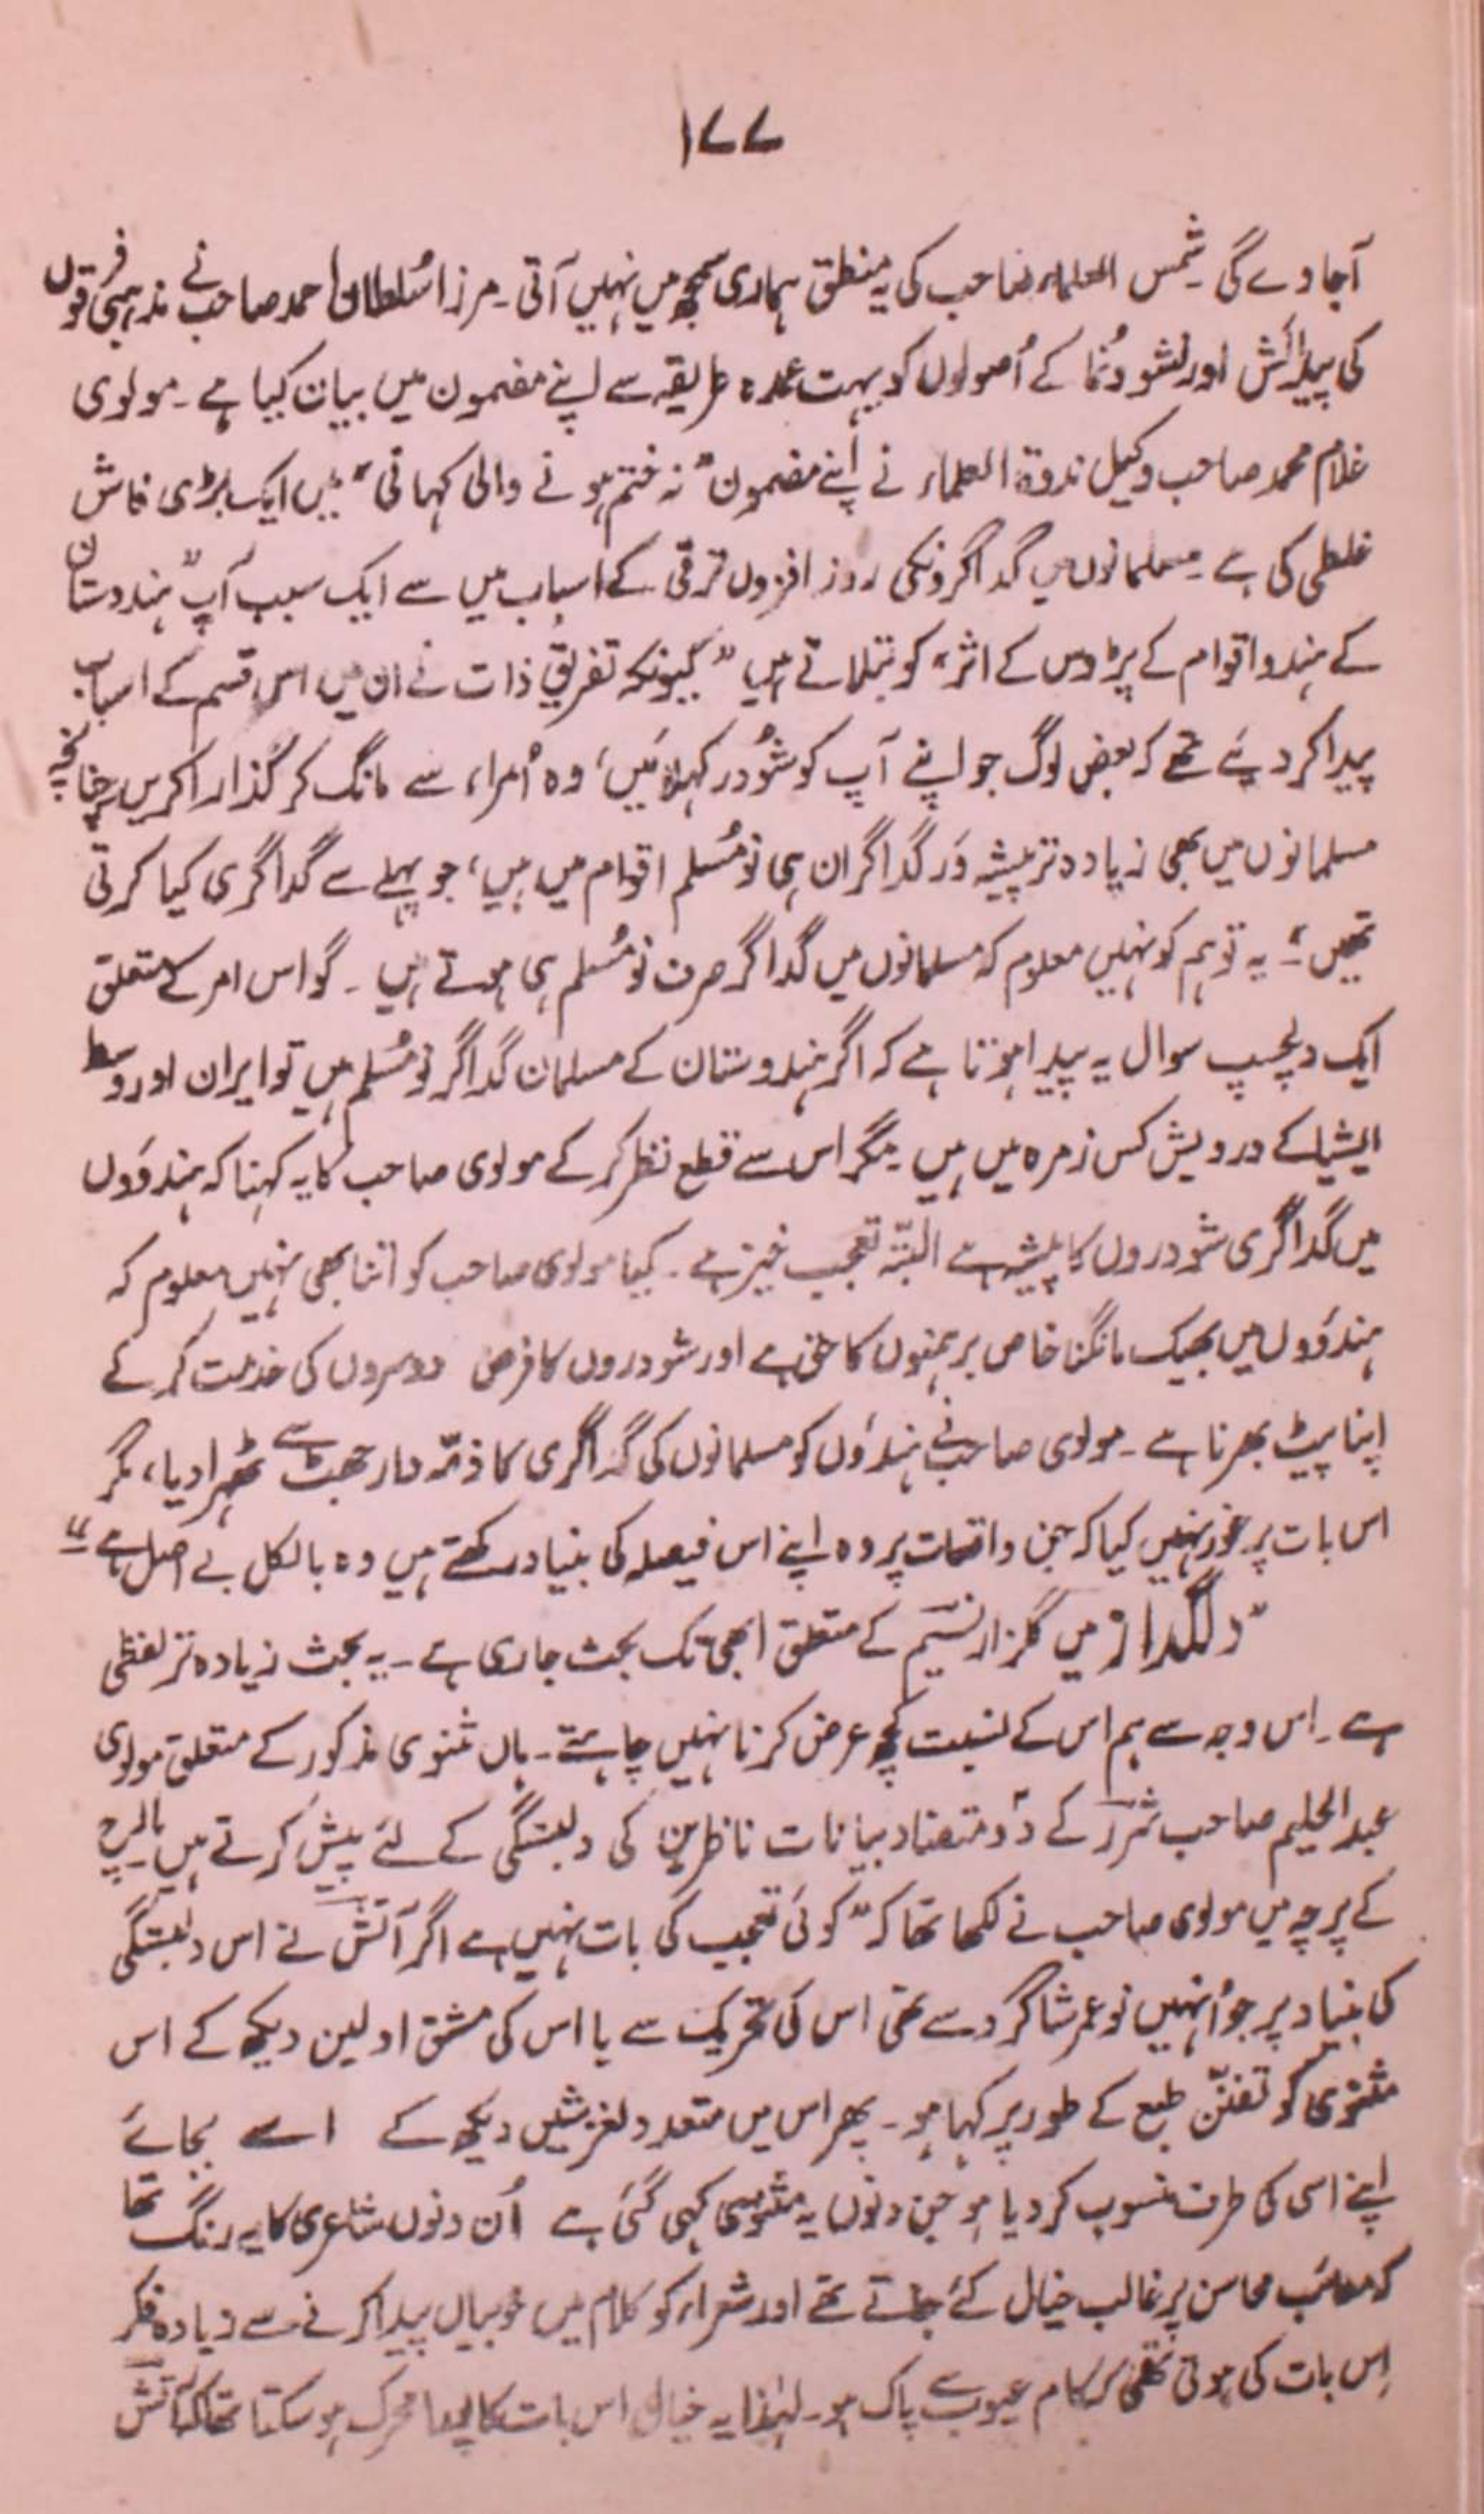 ۱۷۷
آجاوے گی ۔ شمس العلماء صاحب کی یہ منطق ہماری سمجھ میں نہیں آتی ۔ مرزا سُلطان احمد صاحب نے مذہبی فرقوں
کی پیدائش اور نشو و نُما کے اُصولوں کو بہت عمدہ طریقہ سے اپنے مضمون میں بیان کیا ہے ۔ مولوی
غلام محمد صاحب وکیل ندوۃ العلماء نے اپنے مضمون ”نہ ختم ہونے والی کہانی“ میں ایک بڑی فاش
غلطی کی ہے ۔ مسلمانوں میں گداگروں کی روز افزوں ترقی کے اسباب میں سے ایک سبب آپ ”ہندوستان
کے ہندو اقوام کے پڑوس کے اثر“ کو بتلاتے ہیں ”کیونکہ تفریق ذات نے ان میں اس قسم کے اسباب
پیدا کر دیئے تھے کہ بعض لوگ جو اپنے آپ کو شُودر کہلائیں، وہ اُمراء سے مانگ کر گذارا کریں چنانچہ
مسلمانوں میں بھی زیادہ تر پیشہ وَر گداگر ان ہی نو مُسلم اقوام میں ہیں، جو پہلے سے گداگری کیا کرتی
تھیں“۔ یہ تو ہم کو نہیں معلوم کہ مسلمانوں میں گداگر صرف نو مُسلم ہی ہوتے ہیں ۔ گو اس امر کے متعلق
ایک دلچسپ سوال یہ پیدا ہوتا ہے کہ اگر ہندوستان کے مسلمان گداگر نو مُسلم ہیں تو ایران اور وسط
ایشیا کے درویش کس زمرہ میں ہیں ۔ مگر اس سے قطع نظر کر کے مولوی صاحب کا یہ کہنا کہ ہندوؤں
میں گداگری شودروں کا پیشہ ہے البتّہ تعجب خیز ہے ۔ کیا مولوی صاحب کو اتنا بھی نہیں معلوم کہ
ہندوؤں میں بھیک مانگنا خاص برہمنوں کا حق ہے اور شودروں کا فرض دوسروں کی خدمت کر کے
اپنا پیٹ بھرنا ہے ۔ مولوی صاحب نے ہندوؤں کو مسلمانوں کی گداگری کا ذمّہ دار جھٹ سے ٹھہرا دیا، مگر
اس بات پر غور نہیں کیا کہ جن واقعات پر وہ اپنے اس فیصلہ کی بنیاد رکھتے ہیں وہ بالکل بے اصل ہے“
”دلگداز“ میں گلزار نسیم کے متعلق ابھی تک بحث جاری ہے ۔ یہ بحث زیادہ تر لفظی
ہے ۔ اس وجہ سے ہم اس کے نسبت کچھ عرض کرنا نہیں چاہتے ۔ ہاں مثنوی مذکور کے متعلق مولوی
عبدالحلیم صاحب شرر کے دو متضاد بیانات ناظرین کی دلبستگی کے لئے پیش کرتے ہیں ۔ مارچ
کے پرچہ میں مولوی صاحب نے لکھا تھا کہ ”کوئی تعجب کی بات نہیں ہے اگر آتش نے اس دلبستگی
کی بنیاد پر جو اُنہیں نوعمر شاگرد سے تھی اس کی تحریک سے یا اس کی مشق اولین دیکھ کے اس
مثنوی کو تفنّن طبع کے طور پر کہا ہو ۔ پھر اس میں متعدد لغزشیں دیکھ کے اسے بجائے
اپنے اسی کی طرف منسوب کر دیا ہو جن دنوں یہ مثنوی کہی گئی ہے اُن دنوں شاعری کا یہ رنگ تھا
کہ معائب محاسن پر غالب خیال کئے جاتے تھے اور شعراء کو کلام میں خوبیاں پیدا کرنے سے زیادہ فکر
اِس بات کی ہوتی تھی کہ کلام عیوب سے پاک ہو ۔ لہٰذا یہ خیال اس بات کا محرک ہو سکتا تھا کہ آتش